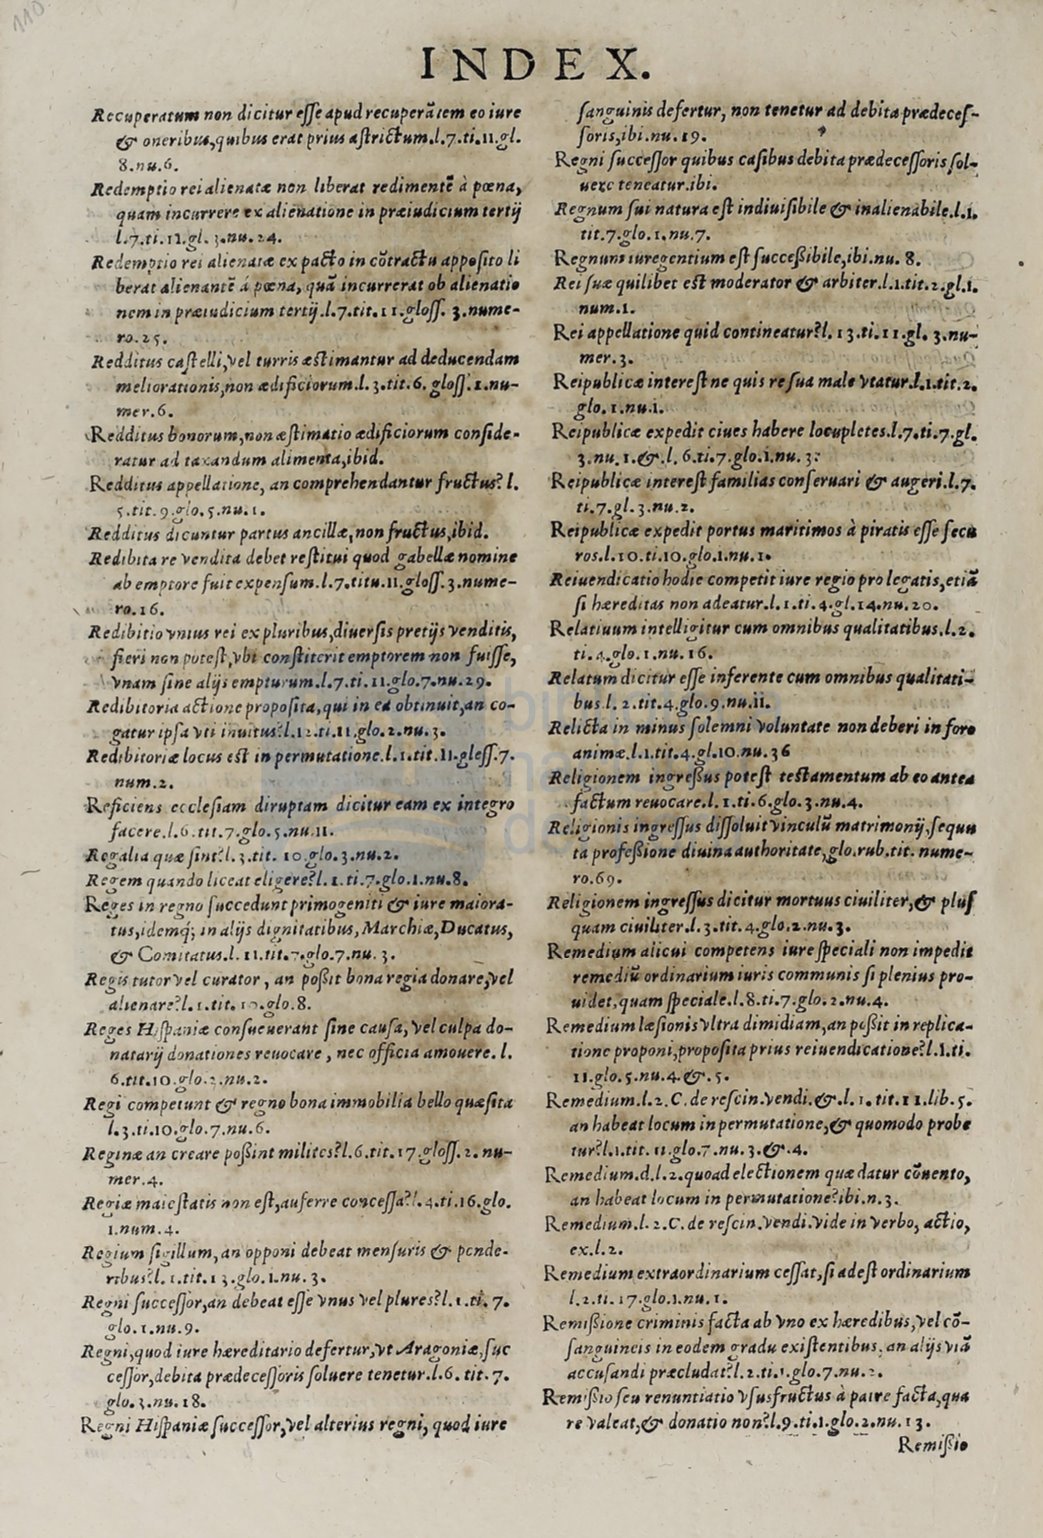 110
INDEX.
Recuperatum non dicitur esse apud recuperãtem eo iure
& oneribus, quibus erat prius astrictum.l.7.ti.11.gl.
8.nu.6.
Redemptio rei alienatæ non liberat redimentẽ à pœna,
quam incurrere ex alienatione in præiudicium tertij
l.7.ti.11.gl.3.nu.24.
Redemptio rei alienatæ ex pacto in cõtractu apposito li
berat alienantẽ à pœna, quã incurrerat ob alienatio
nem in præiudicium tertij.l.7.tit.11.gloss. 3.nume-
ro.25.
Redditus castelli, vel turris æstimantur ad deducendam
meliorationis, non ædificiorum.l.3.tit.6. gloss.1.nu-
mer.6.
Redditus bonorum, non æstimatio ædificiorum conside-
ratur ad taxandum alimenta, ibid.
Redditus appellatione, an comprehendantur fructus? l.
5.tit.9.glo.5.nu.1.
Redditus dicuntur partus ancillæ, non fructus, ibid.
Redibita re vendita debet restitui quod gabellæ nomine
ab emptore fuit expensum.l.7.titu.11.gloss.3.nume-
ro.16.
Redibitio vnius rei ex pluribus, diuersis pretijs venditis,
fieri non potest, vbi constiterit emptorem non fuisse,
vnam sine alijs empturum.l.7.ti.11.glo.7.nu.29.
Redibitoria actione proposita, qui in ea obtinuit, an co-
gatur ipsa vti inuitus?l.12.ti.11.glo.2.nu.3.
Redibitoriæ locus est in permutatione.l.1.tit.11.gloss.7.
num.2.
Reficiens ecclesiam diruptam dicitur eam ex integro
facere.l.6.tit.7.glo.5.nu.11.
Regalia quæ sint?l.3.tit. 10.glo.3.nu.2.
Regem quando liceat eligere?l.1.ti.7.glo.1.nu.8.
Reges in regno succedunt primogeniti & iure maiora-
tus, idemq; in alijs dignitatibus, Marchiæ, Ducatus,
& Comitatus.l.11.tit.7.glo.7.nu.3.
Regis tutor vel curator, an possit bona regia donare, vel
alienare?l.1.tit.10.glo.8.
Reges Hispaniæ consueuerant sine causa, vel culpa do-
natarij donationes reuocare, nec officia amouere. l.
6.tit.10.glo.2.nu.2.
Regi competunt & regno bona immobilia bello quæsita
l.3.ti.10.glo.7.nu.6.
Reginæ an creare possint milites?l.6.tit.17.gloss.2.nu-
mer.4.
Regiæ maiestatis non est, auferre concessa?l.4.ti.16.glo.
1.num.4.
Regium sigillum, an opponi debeat mensuris & ponde-
ribus?l.1.tit.13.glo.1.nu.3.
Regni successor, an debeat esse vnus vel plures?l.1.ti.7.
glo.1.nu.9.
Regni, quod iure hæreditario defertur, vt Aragoniæ, suc
cessor, debita prædecessoris soluere tenetur.l.6.tit.7.
glo.3.nu.18.
Regni Hispaniæ successor, vel alterius regni, quod iure
sanguinis defertur, non tenetur ad debita prædeces-
soris, ibi.nu.19.
Regni successor quibus casibus debita prædecessoris sol-
uere teneatur.ibi.
Regnum sui natura est indiuisibile & inalienabile.l.1.
tit.7.glo.1.nu.7.
Regnum iure gentium est successibile, ibi.nu. 8.
Rei suæ quilibet est moderator & arbiter.l.1.tit.2.gl.1.
num.1.
Rei appellatione quid contineatur?l. 13.ti.11.gl. 3.nu-
mer.3.
Reipublicæ interest ne quis re sua male vtatur.l.1.tit.2.
glo.1.nu.1.
Reipublicæ expedit ciues habere locupletes.l.7.ti.7.gl.
3.nu.1.&.l. 6.ti.7.glo.1.nu.3.
Reipublicæ interest familias conseruari & augeri.l.7.
ti.7.gl.3.nu.2.
Reipublicæ expedit portus maritimos à piratis esse secu
ros.l.10.ti.10.glo.1.nu.1.
Reiuendicatio hodie competit iure regio pro legatis, etiã
si hæreditas non adeatur.l.1.ti.4.gl.14.nu.20.
Relatiuum intelligitur cum omnibus qualitatibus.l.2.
ti.4.glo.1.nu.16.
Relatum dicitur esse inferente cum omnibus qualitati-
bus l. 2.tit.4.glo.9.nu.11.
Relicta in minus solemni voluntate non deberi in foro
animæ.l.1.tit.4.gl.10.nu.36
Religionem ingressus potest testamentum ab eo antea
factum reuocare.l.1.ti.6.glo.3.nu.4.
Religionis ingressus dissoluit vinculũ matrimonij, sequu
ta professione diuina authoritate, glo.rub.tit. nume-
ro.69.
Religionem ingressus dicitur mortuus ciuiliter, & plus
quam ciuiliter.l.3.tit.4.glo.2.nu.3.
Remedium alicui competens iure speciali non impedit
remediũ ordinarium iuris communis si plenius pro-
uidet, quam speciale.l.8.ti.7.glo.2.nu.4.
Remedium læsionis vltra dimidiam, an possit in replica-
tione proponi, proposita prius reiuendicatione?l.1.ti.
11.glo.5.nu.4.&.5.
Remedium.l.2.C.de rescin.vendi.&.l.1.tit.11.lib.5.
an habeat locum in permutatione, & quomodo probe
tur?l.1.tit.11.glo.7.nu.3.&.4.
Remedium.d.l.2.quoad electionem quæ datur cõuento,
an habeat locum in permutatione?ibi.n.3.
Remedium.l.2.C.de rescin.vendi.vide in verbo, actio,
ex.l.2.
Remedium extraordinarium cessat, si adest ordinarium
l.2.ti.17.glo.1.nu.1.
Remissione criminis facta ab vno ex hæredibus, vel cõ-
sanguineis in eodem gradu existentibus, an alijs viã
accusandi præcludat?l.2.ti.1.glo.7.nu.2.
Remissio seu renuntiatio vsusfructus à patre facta, qua
re valeat, & donatio non?l.9.ti.1.glo.2.nu.13.
Remissio